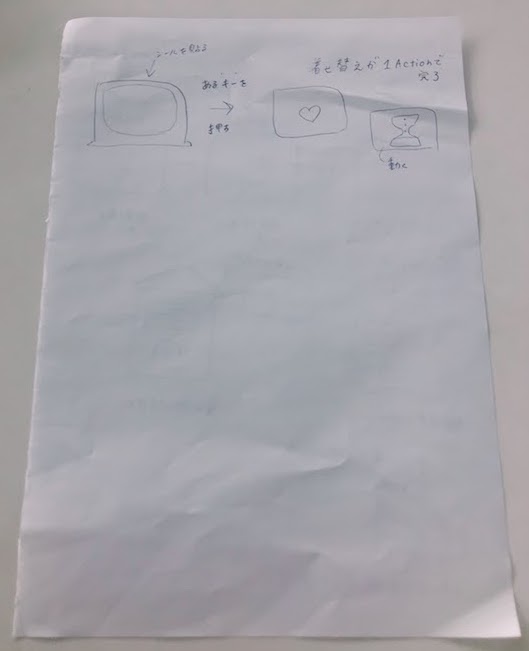 シールを見る
あるキーを
押す
着せ替えが1Actionで
完了
動く